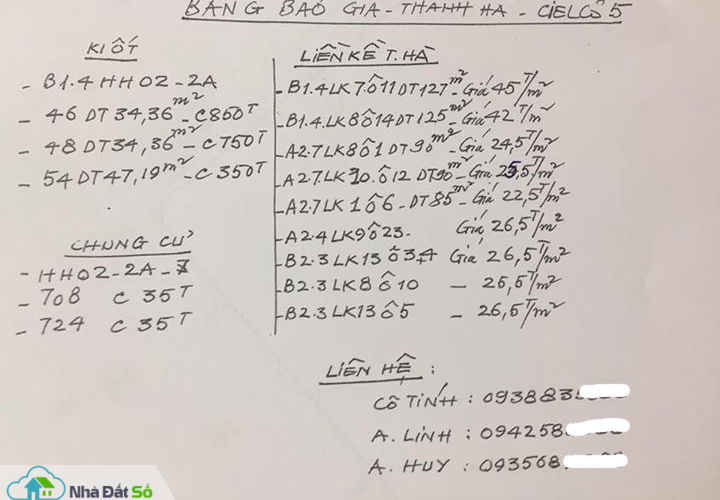 BẢNG BÁO GIÁ - THANH HÀ - CIELCÔ 5
KI ỐT
- B1.4 HH02-2A
- 46 DT 34,36 m² - C 850T
- 48 DT 34,36 m² - C 750T
- 54 DT 47,19 m² - C 350T
CHUNG CƯ
- HH02-2A-7
- 708 C 35T
- 724 C 35T
LIỀN KỀ T.HÀ
- B1.4 LK7 Ô11 DT 127 m² - Giá 45T/m²
- B1.4.LK8 Ô14 DT 125 m² - Giá 42T/m²
- A2.7 LK8 Ô1 DT 90 m² - Giá 24,5T/m²
- A2.7.LK10.Ô12 DT 90 m² - Giá 25,5T/m²
- A2.7 LK1 Ô6 - DT 85 m² - Giá 22,5T/m²
- A2.4 LK9 Ô23 - Giá 26,5T/m²
- B2.3 LK13 Ô34 Giá 26,5T/m²
- B2.3 LK8 Ô10 - 25,5T/m²
- B2.3 LK13 Ô5 - 26,5T/m²
LIÊN HỆ :
CÔ TÍNH : 093883
A. LINH : 094258
A. HUY : 093568
Nhà Đất Số